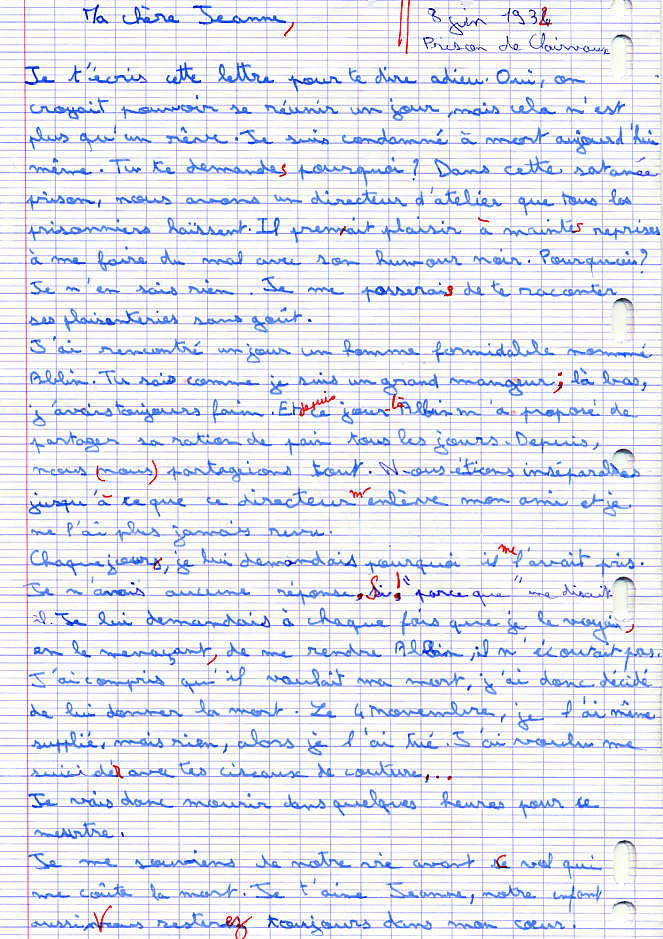 Ma chère Jeanne,
8 juin 1932
Prison de Clairvaux
Je t'écris cette lettre pour te dire adieu. Oui, on
croyait pouvoir se réunir un jour, mais cela n'est
plus qu'un rêve. Je suis condamné à mort aujourd'hui
même. Tu te demandes pourquoi ? Dans cette satanée
prison, nous avons un directeur d'atelier que tous les
prisonniers haïssent. Il prenait plaisir à maintes reprises
à me faire du mal avec son humour noir. Pourquoi ?
Je n'en sais rien. Je me passerais de te raconter
ses plaisenteries sans goût.
J'ai rencontré un jour un homme formidable nommé
Albin. Tu sais comme je suis un grand mangeur ; là bas,
j'avais toujours faim. Et depuis ce jour-là Albin m'a proposé de
partager sa ration de pain tous les jours. Depuis,
nous (nous) partagions tout. Nous étions inséparables
jusqu'à ce que ce directeur m'enlève mon ami et je
ne l'ai plus jamais revu.
Chaque jour, je lui demandais pourquoi il me l'avait pris.
Je n'avais aucune réponse, Si ! "parce que" me disait
il. Je lui demandais à chaque fois que je le voyais,
en le menaçant, de me rendre Albin, il n'écoutait pas.
J'ai compris qu'il voulait ma mort, j'ai donc décidé
de lui donner la mort. Le 4 novembre, je l'ai même
supplié, mais rien, alors je l'ai tué. J'ai voulu me
suicider avec tes ciseaux de couture,...
Je vais donc mourir dans quelques heures pour ce
meurtre.
Je me souviens de notre vie avant ce vol qui
me coûte la mort. Je t'aime Jeanne, notre enfant
aussi, Vous resterez toujours dans mon cœur.